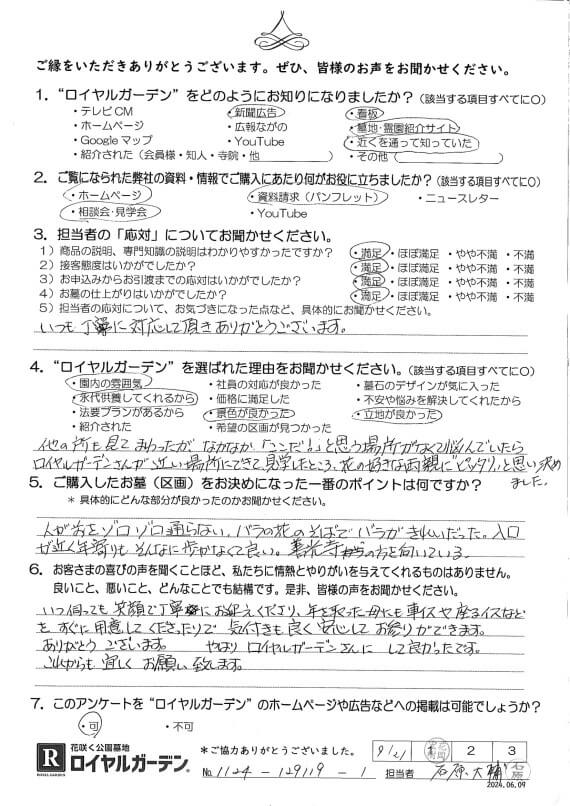 ご縁をいただきありがとうございます。ぜひ、皆様のお声をお聞かせください。
1. “ロイヤルガーデン”をどのようにお知りになりましたか？(該当する項目すべてに○)
・テレビCM ・新聞広告 ・看板
・ホームページ ・広報ながの ・墓地・霊園紹介サイト
・Googleマップ ・YouTube ・近くを通って知っていた
・紹介された（会員様・知人・寺院・他 ） ・その他（ ）
2. ご覧になられた弊社の資料・情報でご購入にあたり何がお役に立ちましたか？(該当する項目すべてに○)
・ホームページ ・資料請求（パンフレット） ・ニュースレター
・相談会・見学会 ・YouTube
3. 担当者の「応対」についてお聞かせください。
1）商品の説明、専門知識の説明はわかりやすかったですか？ ・満足 ・ほぼ満足 ・やや不満 ・不満
2）接客態度はいかがでしたか？ ・満足 ・ほぼ満足 ・やや不満 ・不満
3）お申込みからお引渡までの応対はいかがでしたか？ ・満足 ・ほぼ満足 ・やや不満 ・不満
4）お墓の仕上がりはいかがでしたか？ ・満足 ・ほぼ満足 ・やや不満 ・不満
5）担当者の応対について、お気づきになった点など、具体的にお聞かせください。
いつも丁寧に対応して頂きありがとうございます。
4. “ロイヤルガーデン”を選ばれた理由をお聞かせください。(該当する項目すべてに○)
・園内の雰囲気 ・社員の対応が良かった ・墓石のデザインが気に入った
・永代供養してくれるから ・価格に満足した ・不安や悩みを解決してくれたから
・法要プランがあるから ・景色が良かった ・立地が良かった
・紹介された ・希望の区画が見つかった
他の所も見てまわったが、なかなか「ここだ!」と思う場所がなくて悩んでいたら
ロイヤルガーデンさんが近い場所にできて、見学したところ、花の好きな両親に「ピッタリ」と思い決め
ました。
5. ご購入したお墓（区画）をお決めになった一番のポイントは何ですか？
＊具体的にどんな部分が良かったのかお聞かせください。
人が前をゾロゾロ通らない、バラの花のそばでバラがきれいだった。入口
が近く年寄りもそんなに歩かなくて良い。善光寺の方を向いている。
6. お客さまの喜びの声を聞くことほど、私たちに情熱とやりがいを与えてくれるものはありません。
良いこと、悪いこと、どんなことでも結構です。是非、皆様の声をお聞かせください。
いつ伺っても笑顔で丁寧にお迎えくださり、年を取った母にも車イスや座るイスなど
をすぐに用意してくださったりで気付きも良く安心してお参りができます。
ありがとうございます。 やはりロイヤルガーデンさんにして良かったです。
これからも宜しくお願い致します。
7. このアンケートを“ロイヤルガーデン”のホームページや広告などへの掲載は可能でしょうか？
・可 ・不可
R ROYAL GARDEN
花咲く公園墓地
ロイヤルガーデン®
＊ご協力ありがとうございました。 9/21 1 2 3
No. 1124-129119-1 担当者 石原大輔 石原
2024.06.09